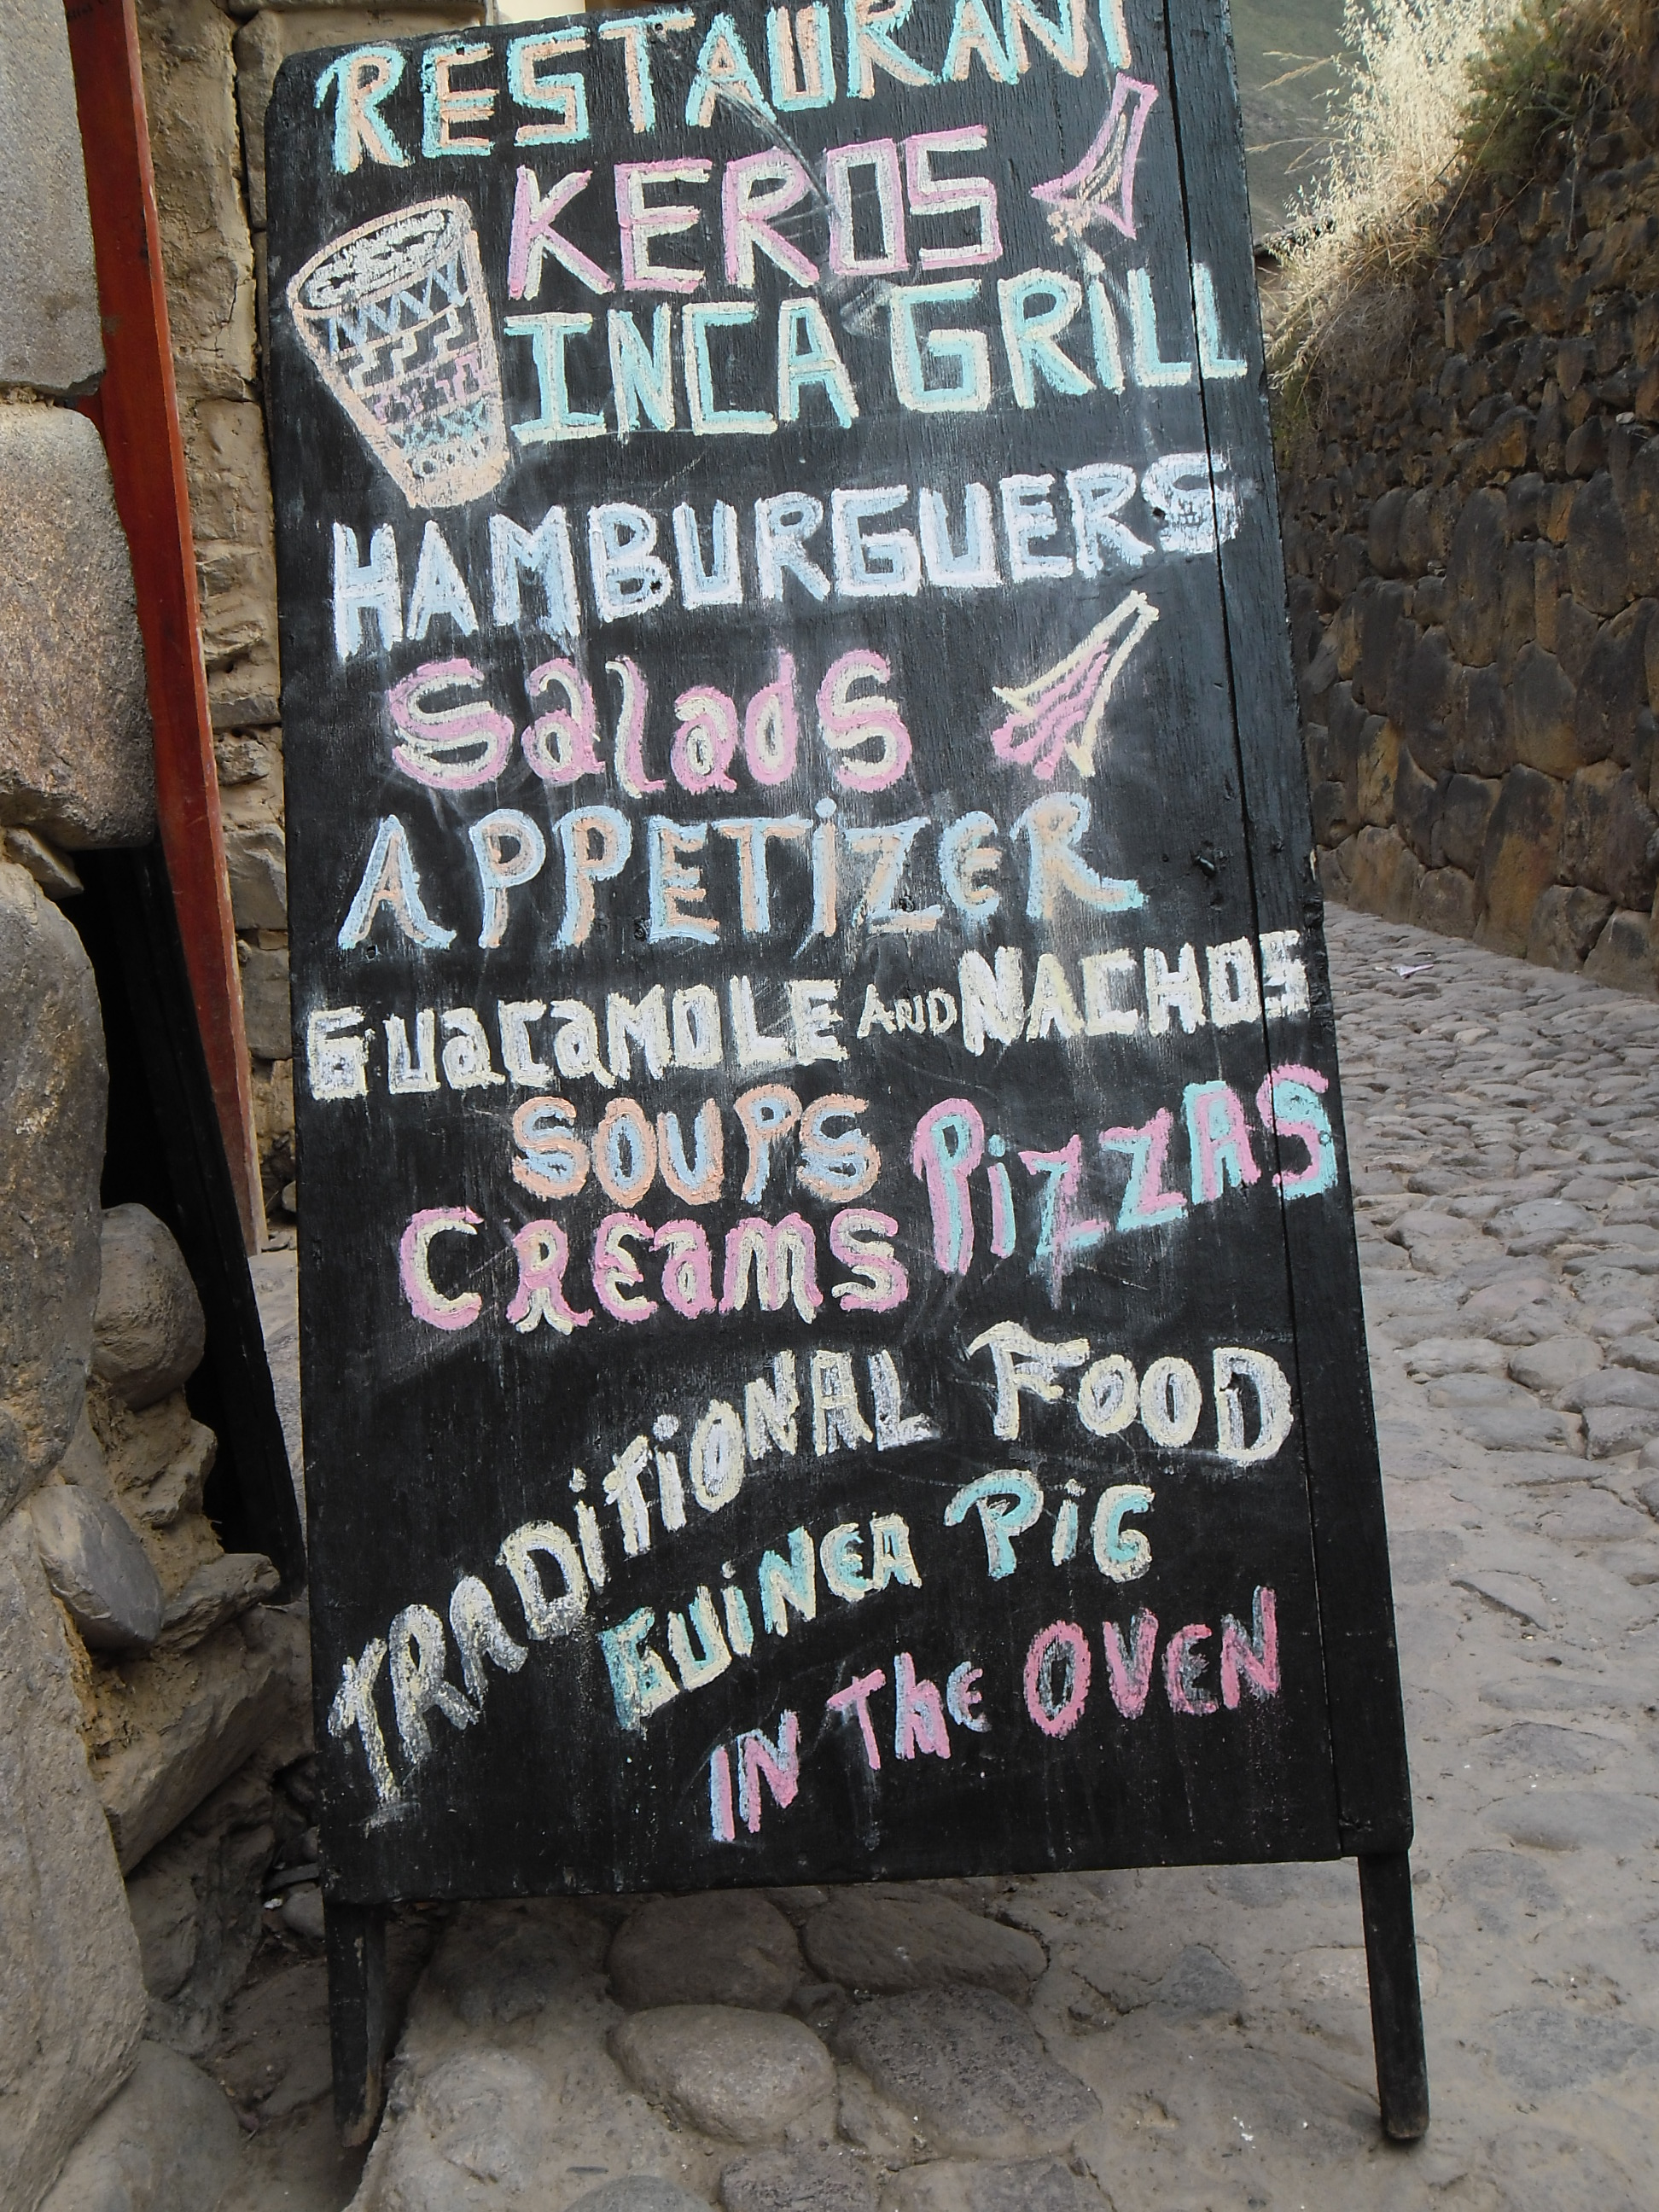 RESTAURANT
KEROS
INCA GRiLL
HAMBURGUERS
Salads
APPETiZER
GuacaMOLE AND NACHOS
SOUPS PiZZAS
CREams
TRADiTiONAL FOOD
GUiNEA PiG
IN The OVEN